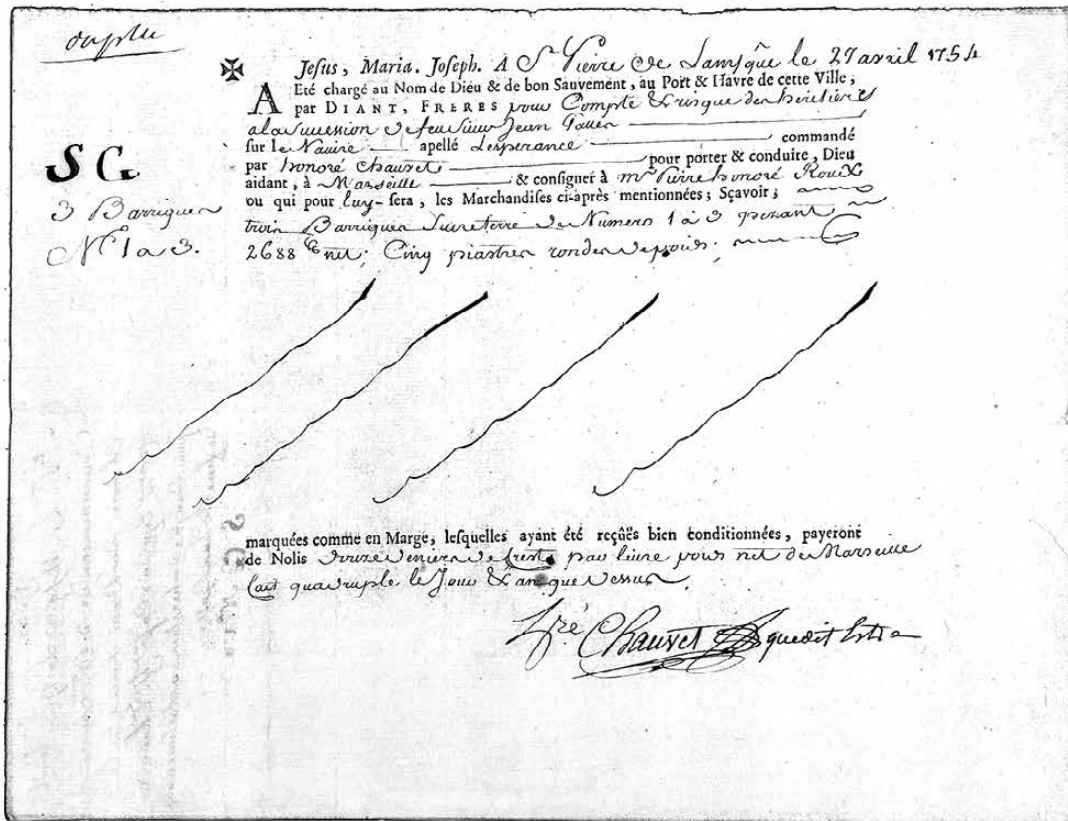 duplta
Jesus, Maria. Joseph. A St Pierre De le 27 avril 1754
A Eté chargé au Nom de Dieu & de bon Sauvement, au Port & Havre de cette Ville,
par DIANT, FRERES pour Compte & risque des heritiers
a la succession de feu sieur Jean
sur le Navire apellé Lesperance commandé
par honoré Chauvet pour porter & conduire, Dieu
aidant, à Marseille & consigner à mr Pierre honoré Roux
ou qui pour luy sera, les Marchandises ci-après mentionnées; Sçavoir;
trois Barriques Sucre terré de Numero 1 a 3 pezant
2688 net; Cinq piastres rondes de poids;
SG
3 Barriques
No 1 a 3.
marquées comme en Marge, lesquelles ayant été reçûës bien conditionnées, payeront
de Nolis douze deniers de frest par livre poids net de Marseille
fait quadruple le Jour & an que dessus
Chauvet que dit